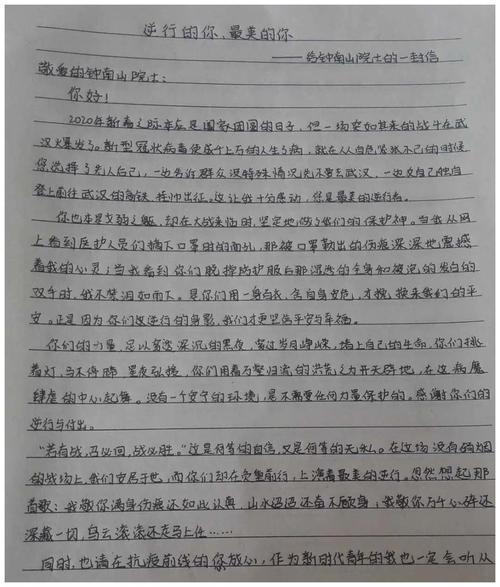 逆行的你、最美的你
——给钟南山院士的一封信
敬爱的钟南山院士：
你好！
2020年新春之际本应是阖家团圆的日子，但一场突如其来的战斗在武
汉火爆发了。新型冠状病毒使成千上万的人生了病，就在人心惶惶不已的时候
您选择了先人后己，一边告诉群众没特殊情况先不要去武汉，一边又自己独自
登上前往武汉的高铁 挂帅出征。这让我十分感动，您是最美的逆行者。
你也本是文弱之躯，却在大战来临时，坚定地做了我们的保护神。当我从网
上看到医护人员们摘下口罩时的面孔，那被口罩勒出的伤痕深深地震撼
着我的心灵；当我看到你们脱掉防护服后那湿透的全身和被泡的发白的
双手时，我不禁泪如雨下。是你们用一身白衣，舍自身安危，才挽 换来我们的平
安。正是因为你们这逆行的身影，我们才更坚信平安与幸福。
你们的力量，足以穿透深沉的黑夜，穿过岁月峥嵘，堵上自己的生命，你们挑
着灯，马不停蹄，星夜驰援，你们用着万擎归流的洪荒之力开天辟地，在这病魔
肆虐的中心起舞。没有一个安宁的环境，是不需要任何力量保护的。感谢你们的
逆行与付出。
“若有战，召必回，战必胜。”这是何等的自信，又是何等的无私。在这场没有硝烟
的战场上，我们安居于世，而你们却在负重前行，上演着最美的逆行。忽然想起那
首歌：我敬你满身伤痕还如此认真，山水迢迢还奋不顾身；我敬你万千心碎还
深藏一切，乌云滚滚还走马上任……
同时，也请在抗疫前线的您放心，作为新时代青年的我也一定会听从